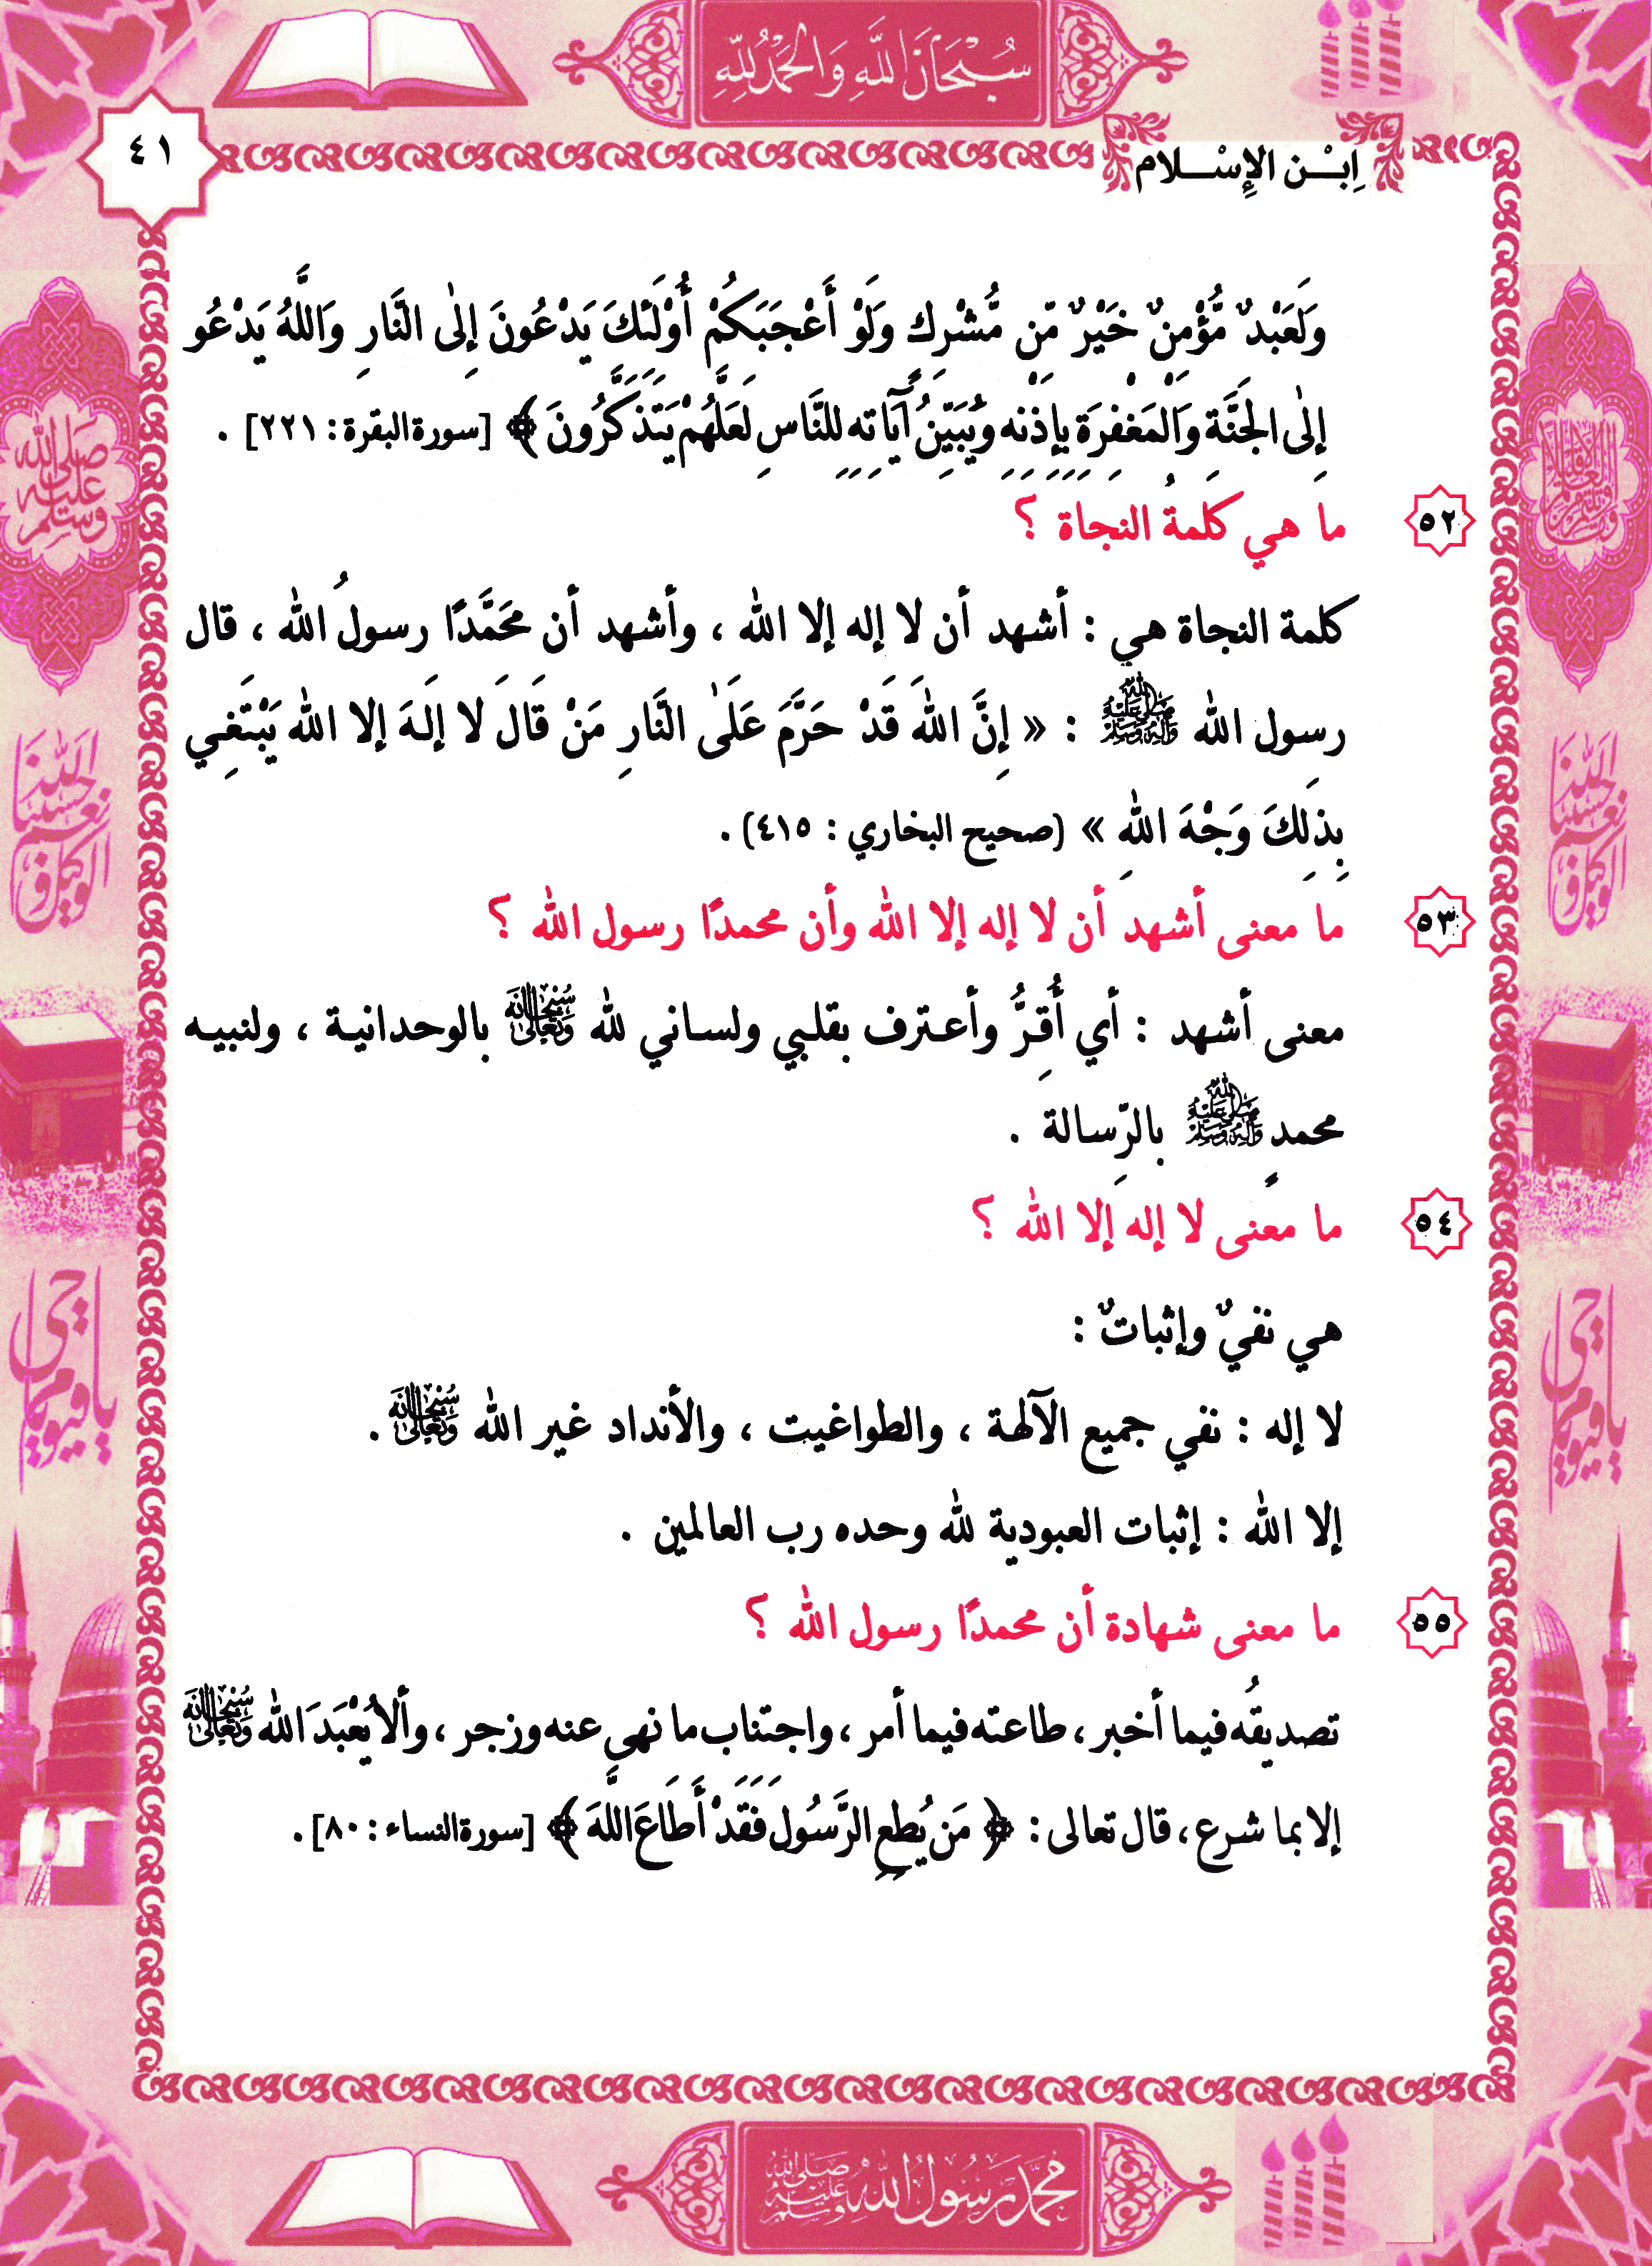 سُبْحَانَ اللَّهِ وَالْحَمْدُ لِلَّهِ
٤١
اِبْـــن الإِسْـــلام
وَلَعَبْدٌ مُّؤْمِنٌ خَيْرٌ مِّن مُّشْرِكٍ وَلَوْ أَعْجَبَكُمْ أُوْلَئِكَ يَدْعُونَ إِلَى النَّارِ وَاللَّهُ يَدْعُو
إِلَى الْجَنَّةِ وَالْمَغْفِرَةِ بِإِذْنِهِ وَيُبَيِّنُ آيَاتِهِ لِلنَّاسِ لَعَلَّهُمْ يَتَذَكَّرُونَ ﴾ [سورة البقرة : ٢٢١] .
٥٢ ما هي كلمةُ النجاة ؟
كلمة النجاة هي : أشهد أن لا إله إلا الله ، وأشهد أن محَمَّدًا رسولُ الله ، قال
رسول الله ﷺ : « إِنَّ اللهَ قَدْ حَرَّمَ عَلَى النَّارِ مَنْ قَالَ لا إِلَهَ إلا الله يَبْتَغِي
بِذَلِكَ وَجْهَ اللهِ » (صحيح البخاري : ٤١٥) .
٥٣ ما معنى أشهد أن لا إله إلا الله وأن محمدًا رسول الله ؟
معنى أشهد : أي أُقِرُّ وأعـترف بقلـبي ولسـاني لله سُبْحَانَهُ وَتَعَالَىٰ بالوحدانيـة ، ولنبيـه
محمدٍ ﷺ بالرِّسالة .
٥٤ ما معنى لا إله إلا الله ؟
هي نفيٌ وإثباتٌ :
لا إله : نفي جميع الآلهة ، والطواغيت ، والأنداد غير الله سُبْحَانَهُ وَتَعَالَىٰ .
إلا الله : إثبات العبودية لله وحده رب العالمين .
٥٥ ما معنى شهادة أن محمدًا رسول الله ؟
تصديقُه فيما أخبر ، طاعته فيما أمر ، واجتناب ما نهى عنه وزجر ، وألا يُعْبَدَ الله سُبْحَانَهُ وَتَعَالَىٰ
إلا بما شرع ، قال تعالى : ﴿ مَن يُطِعِ الرَّسُولَ فَقَدْ أَطَاعَ اللَّهَ ﴾ [سورة النساء : ٨٠] .
صلى الله عليه وسلم
حسبنا الله ونعم الوكيل
يا حي يا قيوم
محمد رسول الله صلى الله عليه وسلم